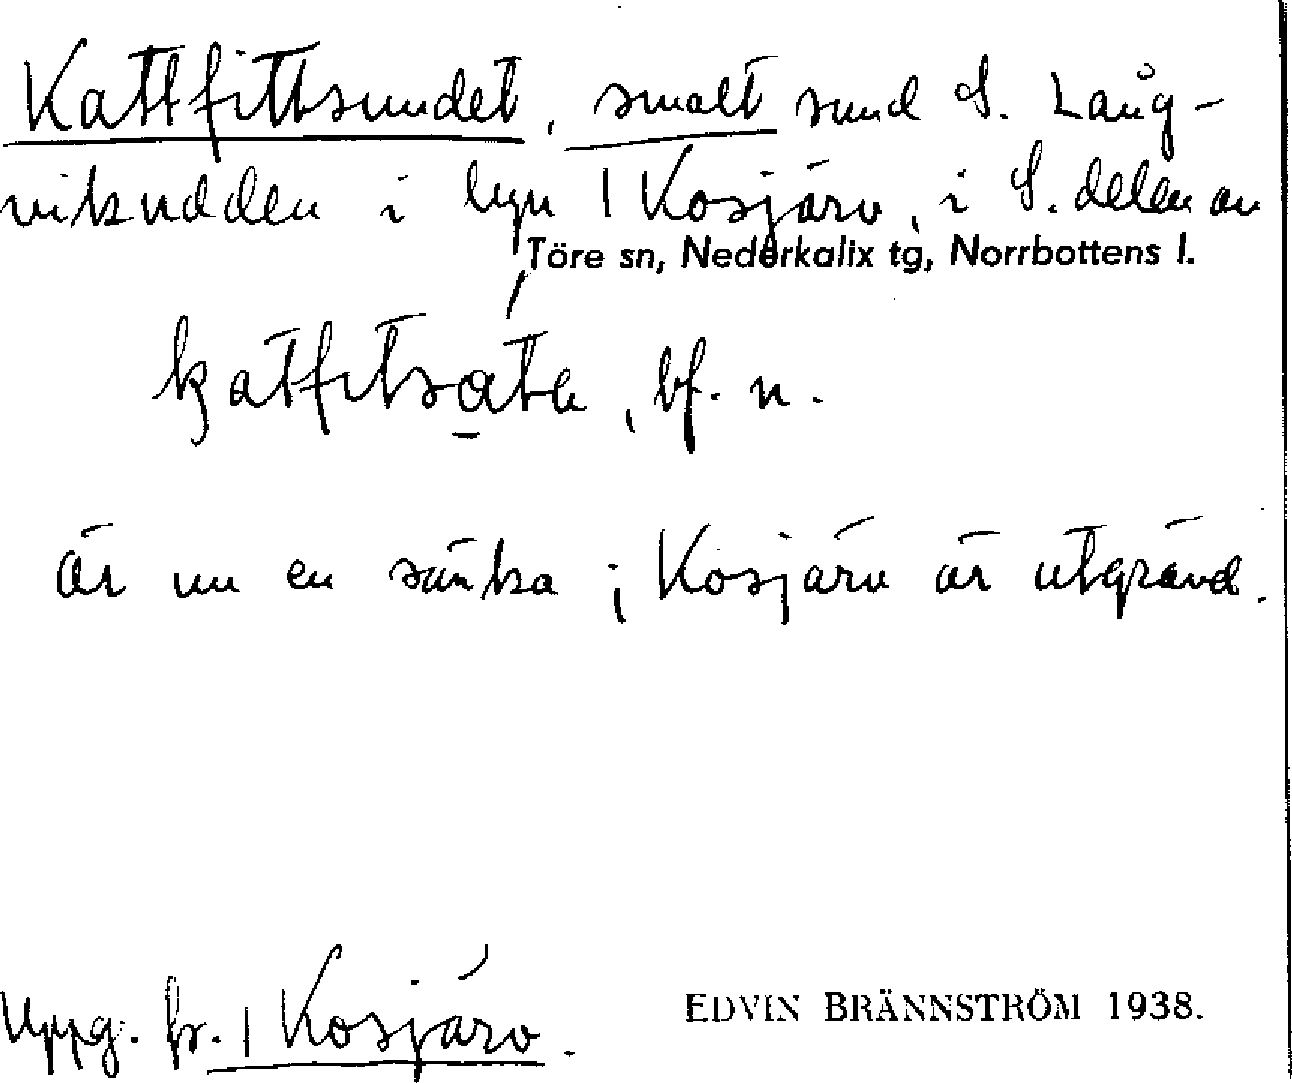 Kattfittsundet, smalt sund S. Lång-
viksudden i byn | Kosjärv, i S. delen av
Töre sn, Nederkalix tg, Norrbottens l.
bf. n.
är nu en sänka; Kosjärv är utgrävd.
Uppg. fr. | Kosjärv.
EDVIN BRÄNNSTRÖM 1938.